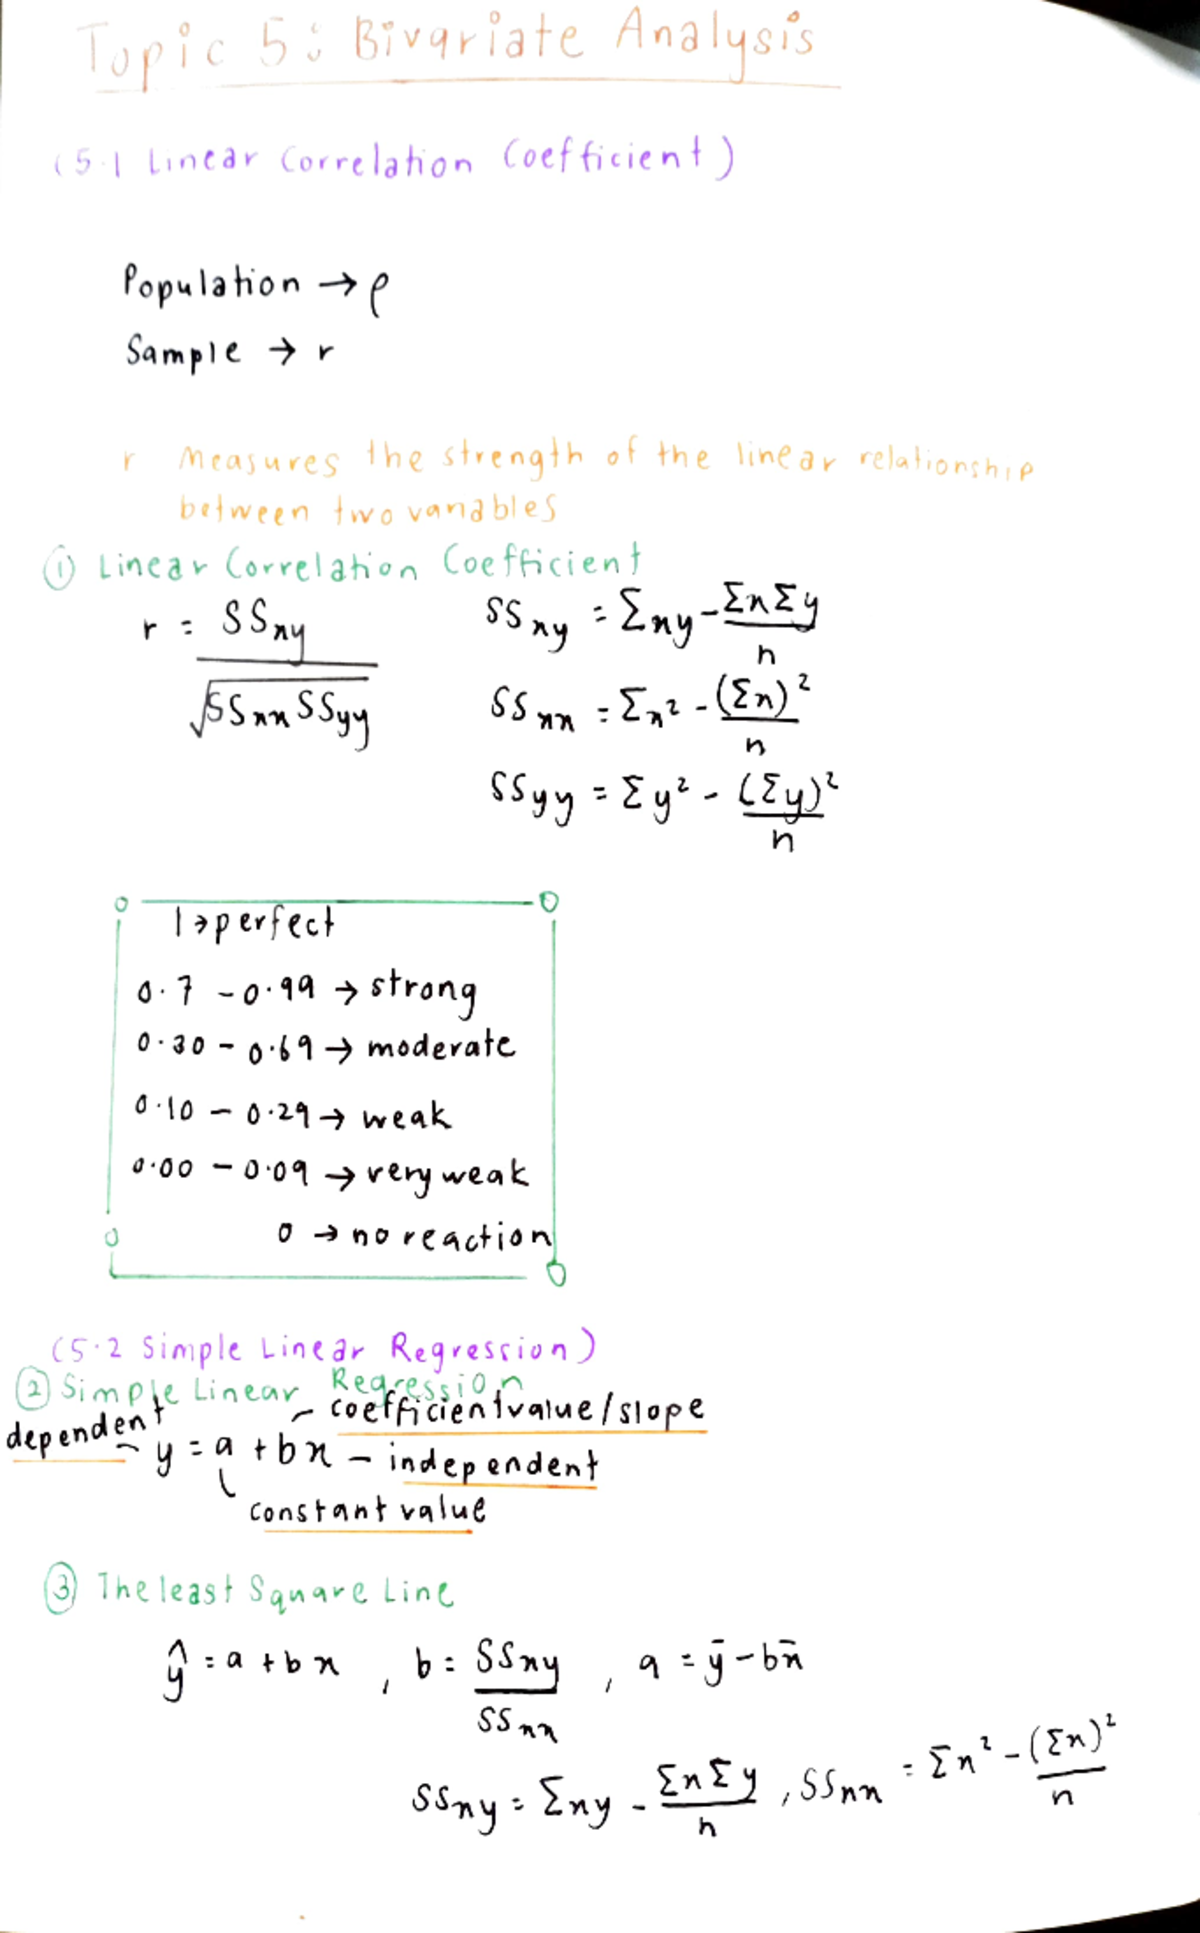 Topic 5: Bivariate Analysis
(5.1 Linear Correlation Coefficient)
Population → ρ
Sample → r
r measures the strength of the linear relationship
between two variables
① Linear Correlation Coefficient
r = SSxy / √SSxx SSyy
SSxy = Σxy - ΣxΣy / n
SSxx = Σx² - (Σx)² / n
SSyy = Σy² - (Σy)² / n
1 → perfect
0.7 - 0.99 → strong
0.30 - 0.69 → moderate
0.10 - 0.29 → weak
0.00 - 0.09 → very weak
0 → no reaction
(5.2 Simple Linear Regression)
② Simple Linear Regression
- coefficient value / slope
dependent - y = a + bx - independent
constant value
③ The least Square Line
ŷ = a + bx , b = SSxy / SSxx , a = ȳ - bx̄
SSxy = Σxy - ΣxΣy / n , SSxx = Σx² - (Σx)² / n